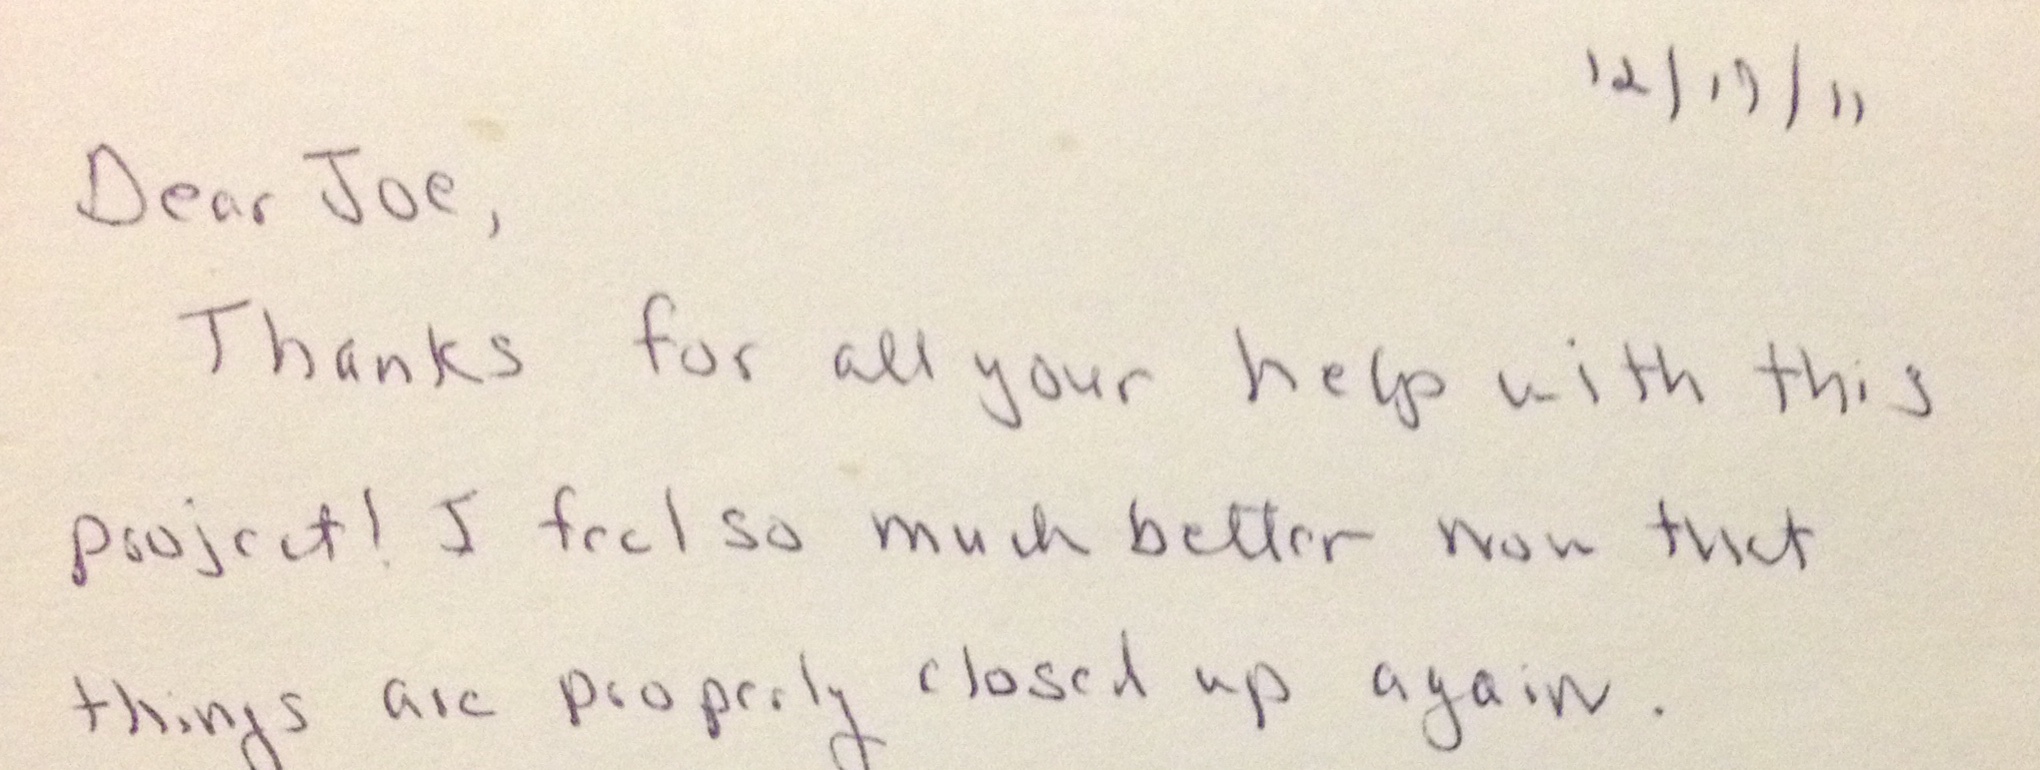 12/19/11
Dear Joe,
Thanks for all your help with this
project! I feel so much better now that
things are properly closed up again.